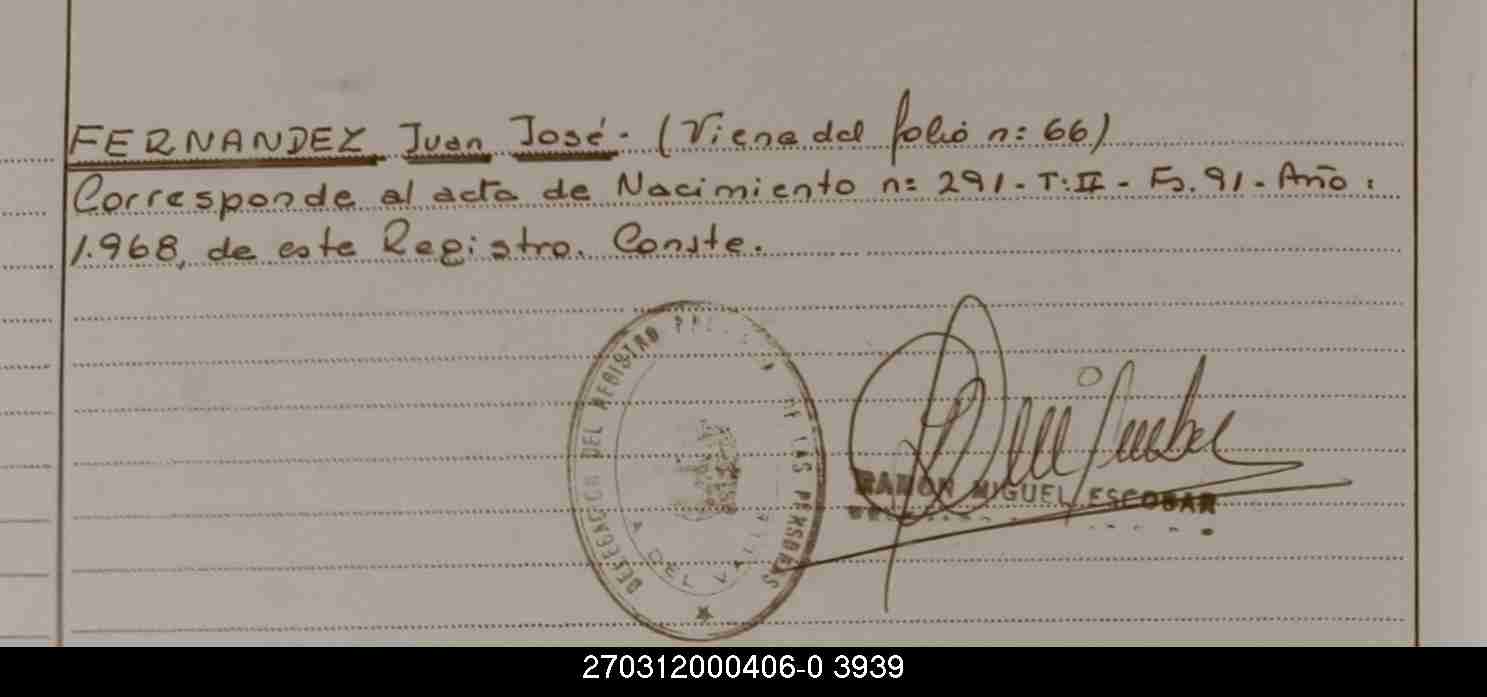 FERNANDEZ Juan José.- (Viene del folio n: 66)
Corresponde al acta de Nacimiento n: 291- T: II - Fs. 91 - Año:
1.968, de este Registro. Conste.
DELEGACION DEL REGISTRO DE LAS PERSONAS
DEL
RAMON MIGUEL ESCOBAR
270312000406-0 3939